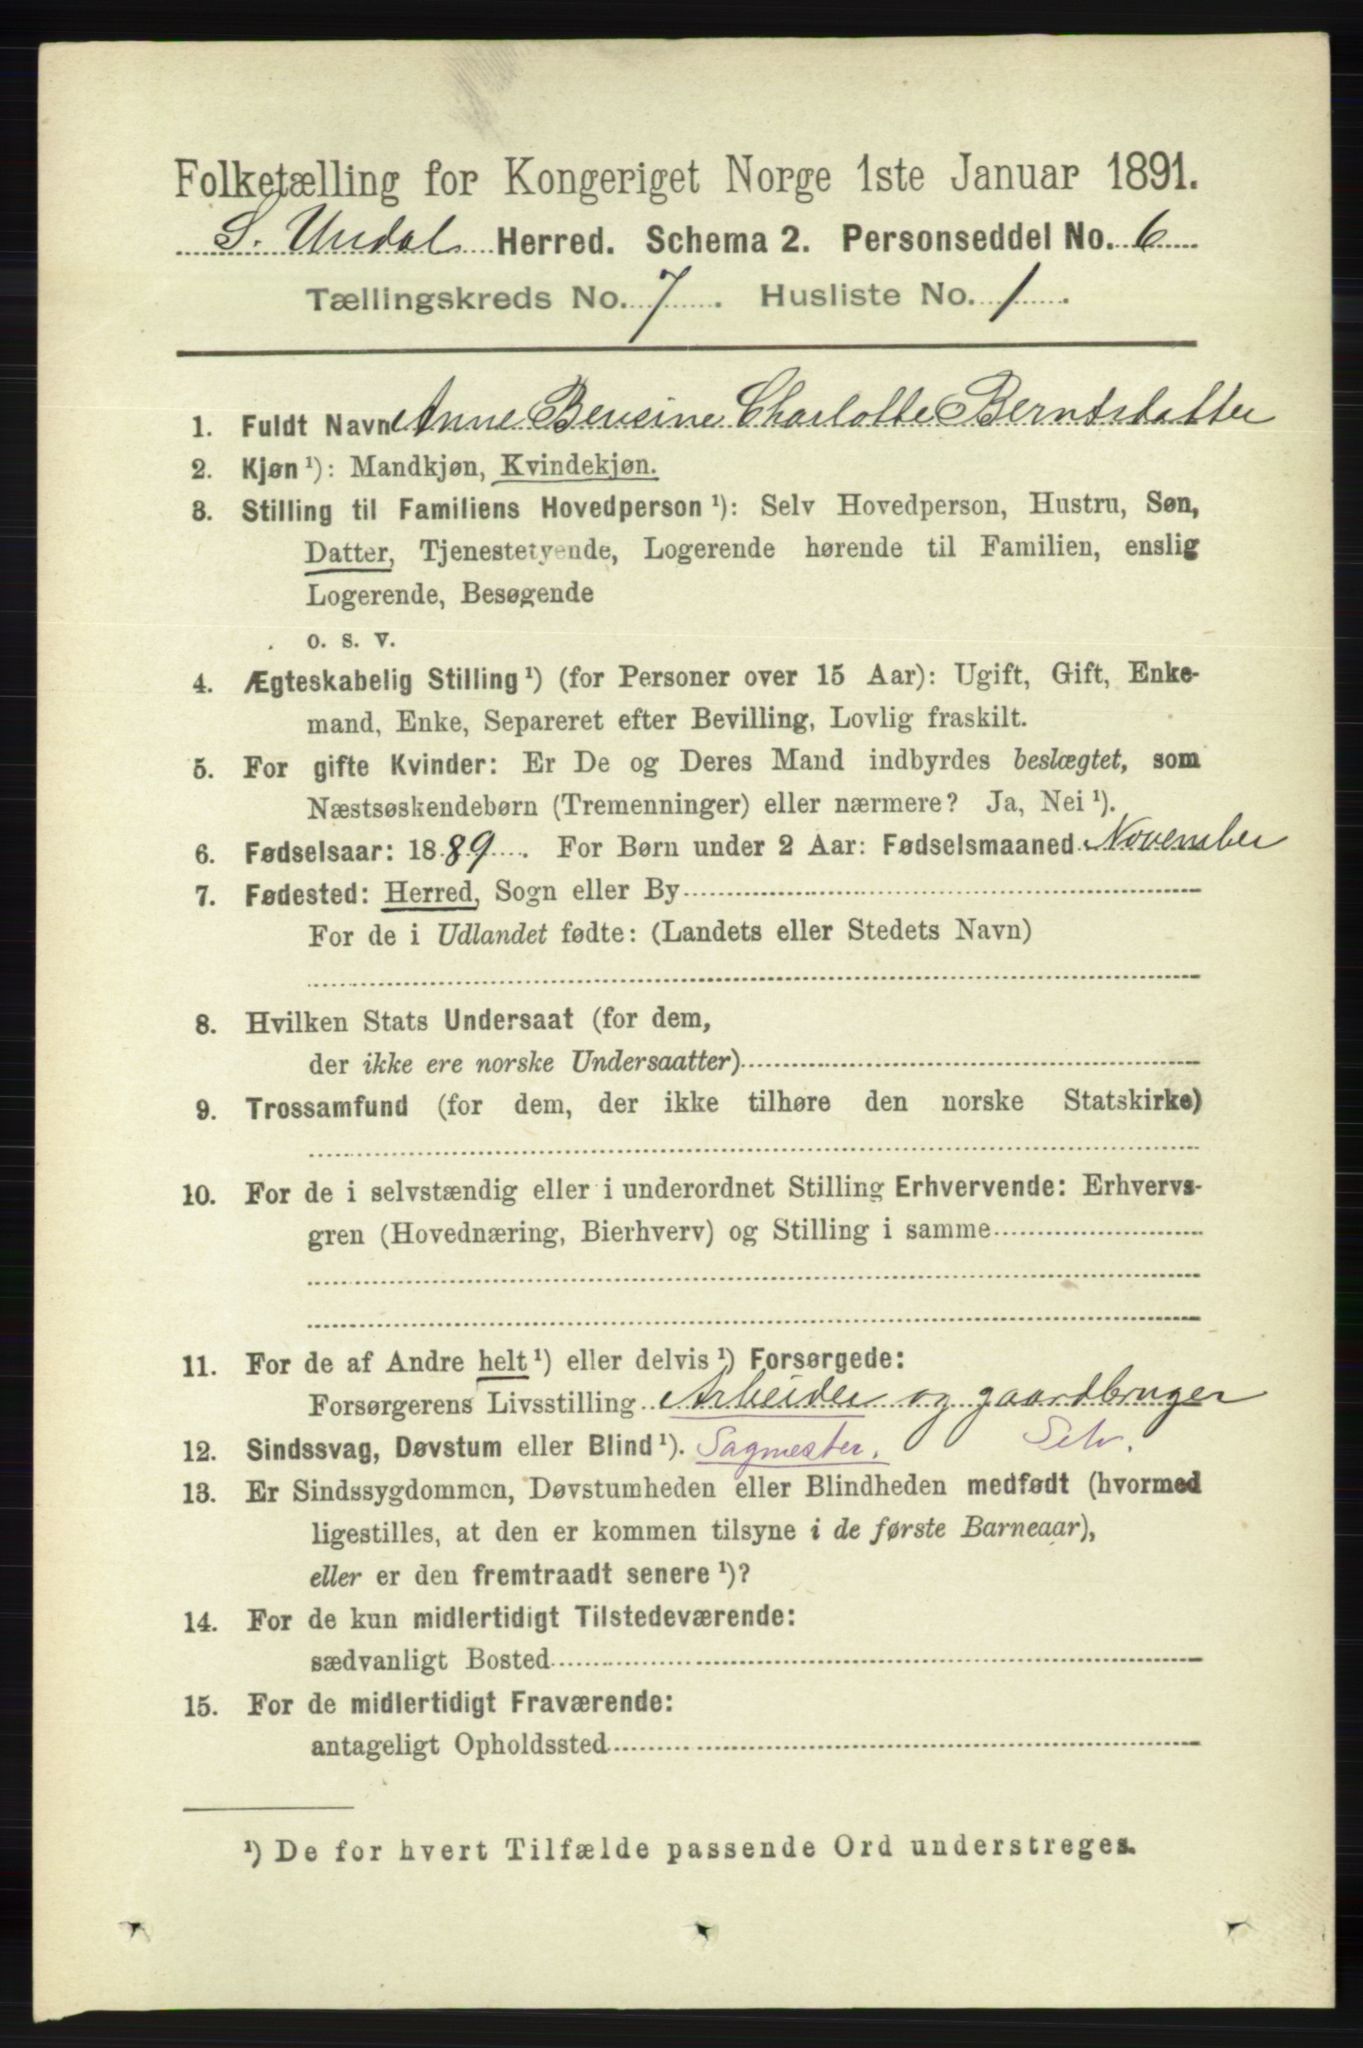 Folketælling for Kongeriget Norge 1ste Januar 1891.
S. Undal Herred. Schema 2. Personseddel No. 6
Tællingskreds No. 7. Husliste No. 1.
1. Fuldt Navn Anne Bensine Charlotte Berntsdatter
2. Kjøn ¹): Mandkjøn, Kvindekjøn.
3. Stilling til Familiens Hovedperson ¹): Selv Hovedperson, Hustru, Søn,
Datter, Tjenestetyende, Logerende hørende til Familien, enslig
Logerende, Besøgende
o. s. v.
4. Ægteskabelig Stilling ¹) (for Personer over 15 Aar): Ugift, Gift, Enke-
mand, Enke, Separeret efter Bevilling, Lovlig fraskilt.
5. For gifte Kvinder: Er De og Deres Mand indbyrdes beslægtet, som
Næstsøskendebørn (Tremenninger) eller nærmere? Ja, Nei ¹).
6. Fødselsaar: 1889. For Børn under 2 Aar: Fødselsmaaned November
7. Fødested: Herred, Sogn eller By
For de i Udlandet fødte: (Landets eller Stedets Navn)
8. Hvilken Stats Undersaat (for dem,
der ikke ere norske Undersaatter)
9. Trossamfund (for dem, der ikke tilhøre den norske Statskirke)
10. For de i selvstændig eller i underordnet Stilling Erhvervende: Erhvervs-
gren (Hovednæring, Bierhverv) og Stilling i samme
11. For de af Andre helt ¹) eller delvis ¹) Forsørgede:
Forsørgerens Livsstilling Arbeider og gaardbruger
12. Sindssvag, Døvstum eller Blind ¹). Sagmester. Selv.
13. Er Sindssygdommen, Døvstumheden eller Blindheden medfødt (hvormed
ligestilles, at den er kommen tilsyne i de første Barneaar),
eller er den fremtraadt senere ¹)?
14. For de kun midlertidigt Tilstedeværende:
sædvanligt Bosted
15. For de midlertidigt Fraværende:
antageligt Opholdssted
¹) De for hvert Tilfælde passende Ord understreges.